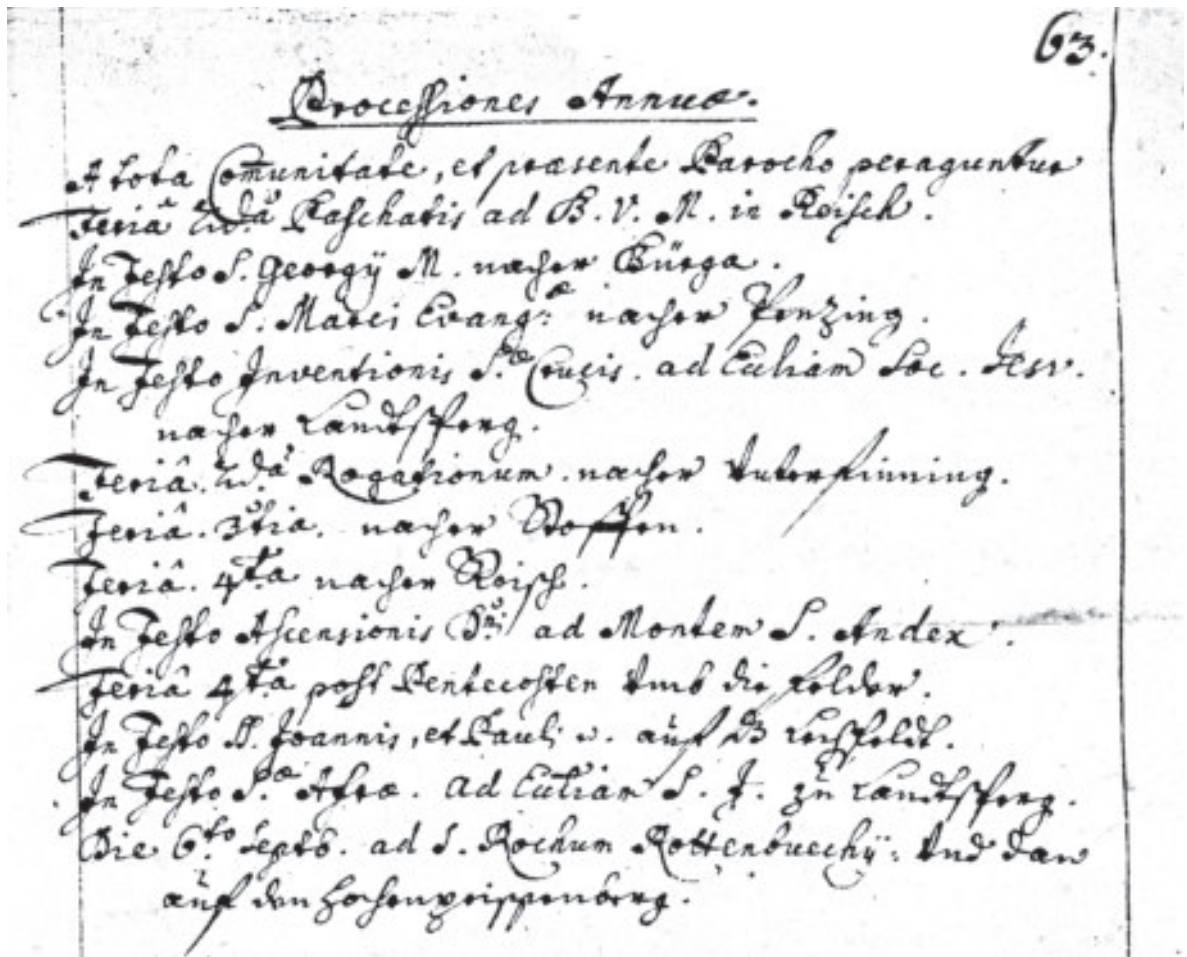 63.
Processiones Annuæ.
A tota Com̄unitate, et præsente Parocho peraguntur
Feriâ 2.dâ Paschatis ad B. V. M. in Reisch.
In Festo S. Georgÿ M. nacher Bürga.
In Festo S. Marci Evang:æ nacher Penzing.
In Festo Inventionis S.æ Crucis. ad Eccliam Soc. Jesv.
nacher Landtsperg.
Feriâ. 2.dâ Rogationum. nacher Vnterfinning.
Feriâ. 3tia. nacher Stoffen.
Feriâ. 4.ta nacher Reisch.
In Festo Ascensionis Dni ad Montem S. Andex.
Feriâ 4.ta post Pentecosten Vmb die Felder.
In Festo SS. Joannis, et Pauli auf dz Lechfeldt.
In Festo S.æ Afræ. ad Eccliam S. J. zu Landtsperg.
Die 6.to Septb. ad S. Rochum Rottenbuechÿ: Vnd dan
auf den Hochenpeissenberg.